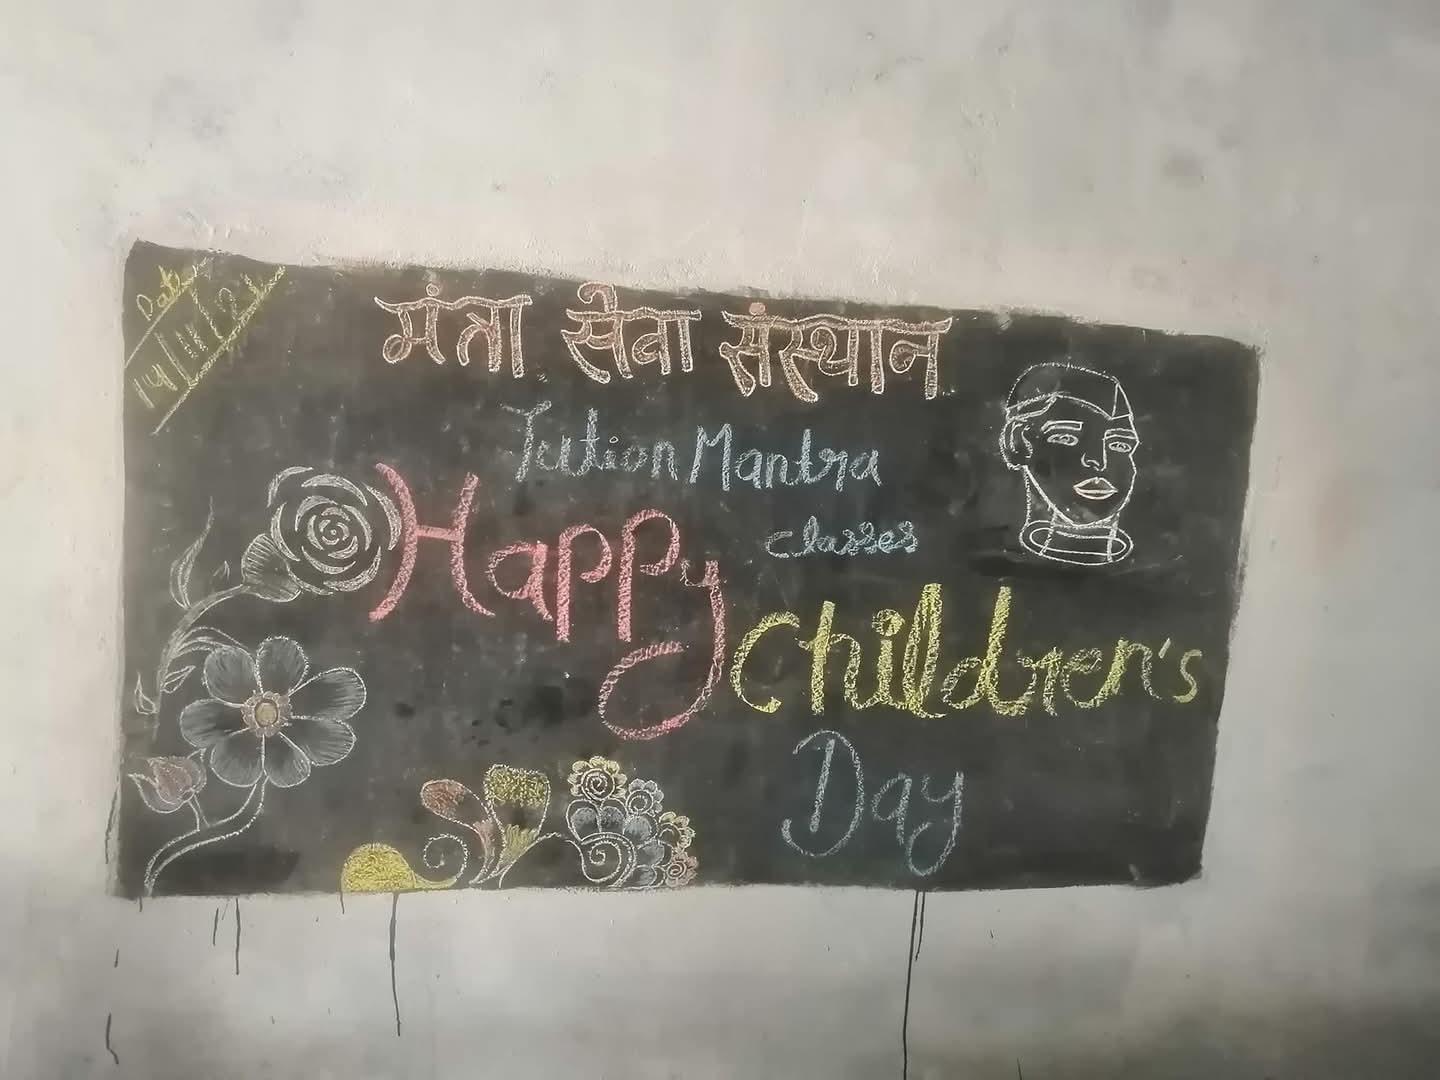 Date
14/11/21
मंत्रा सेवा संस्थान
Tution Mantra
classes
Happy
Children's
Day